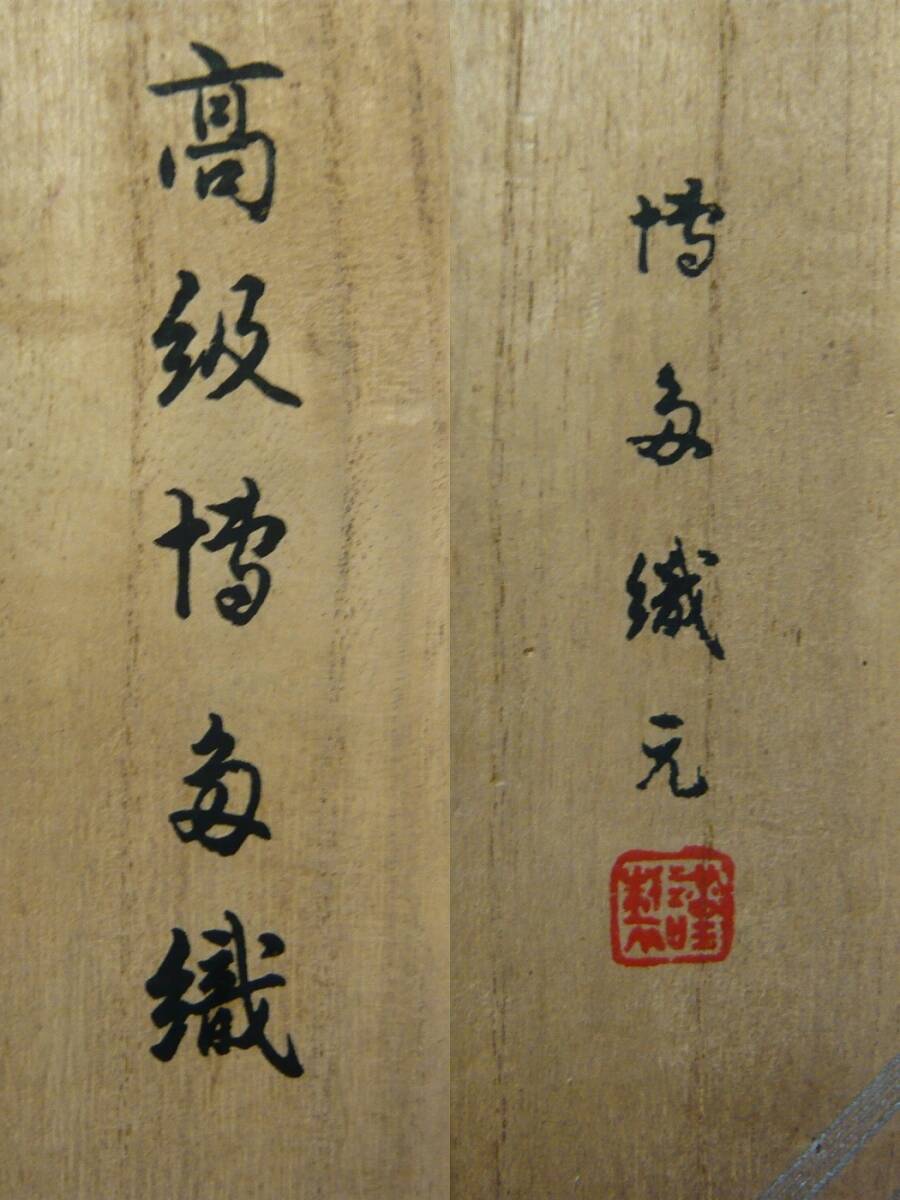 高級博多織
博多織元
謹製